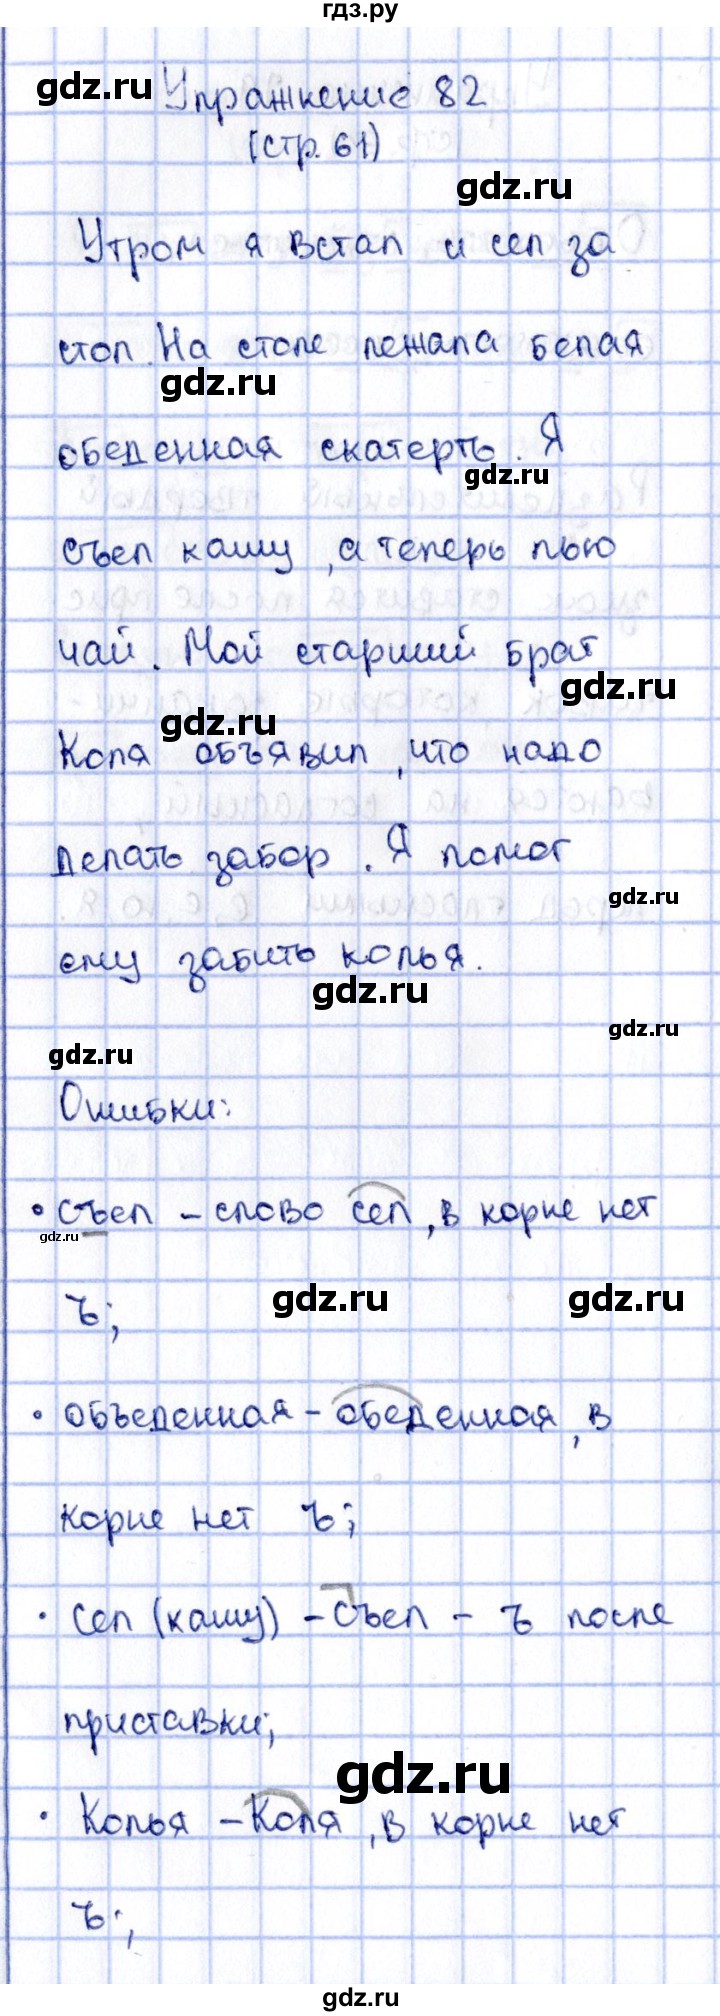 гдз.ру
gdz.ru
Упражнение 82
(стр. 61)
gdz.ru
Утром я встал и сел за
стол. На столе лежала белая
gdz.ru
обеденная скатерть. Я
gdz.ru
съел кашу, а теперь пью
чай. Мой старший брат
gdz.ru
gdz.ru
Коля объявил, что надо
делать забор. Я помог
gdz.ru
ему забить колья.
gdz.ru
gdz.ru
gdz.ru
Ошибки:
• съел – слово сел, в корне нет
gdz.ru
gdz.ru
gdz.ru
ъ;
• объеденная – обеденная, в
корне нет ъ;
• сел (кашу) – съел – ъ после
приставки;
gdz.ru
• Колья – Коля, в корне нет
ъ;
gdz.ru